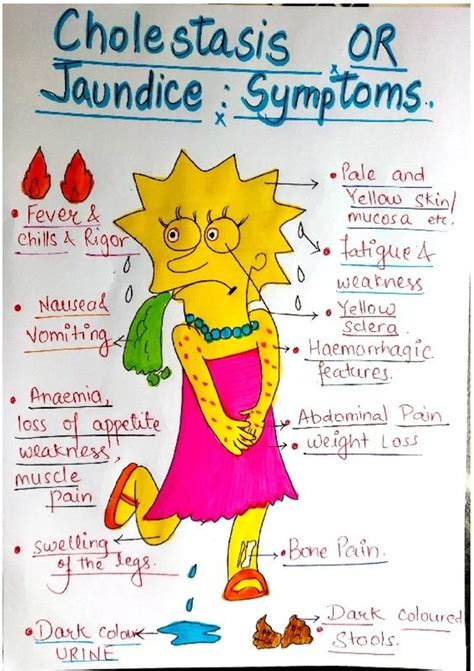 Cholestasis OR
Jaundice : Symptoms..
• Fever &
chills & Rigor
• Nausea &
Vomiting
• Anaemia,
loss of appetite
weakness,
muscle
pain
• swelling
of the legs.
• Dark colour
URINE
• Pale and
Yellow skin/
mucosa etc.
• fatigue &
weakness
• Yellow
sclera.
• Haemorrhagic
features.
• Abdominal Pain
• weight Loss
• Bone Pain.
• Dark coloured
Stools.